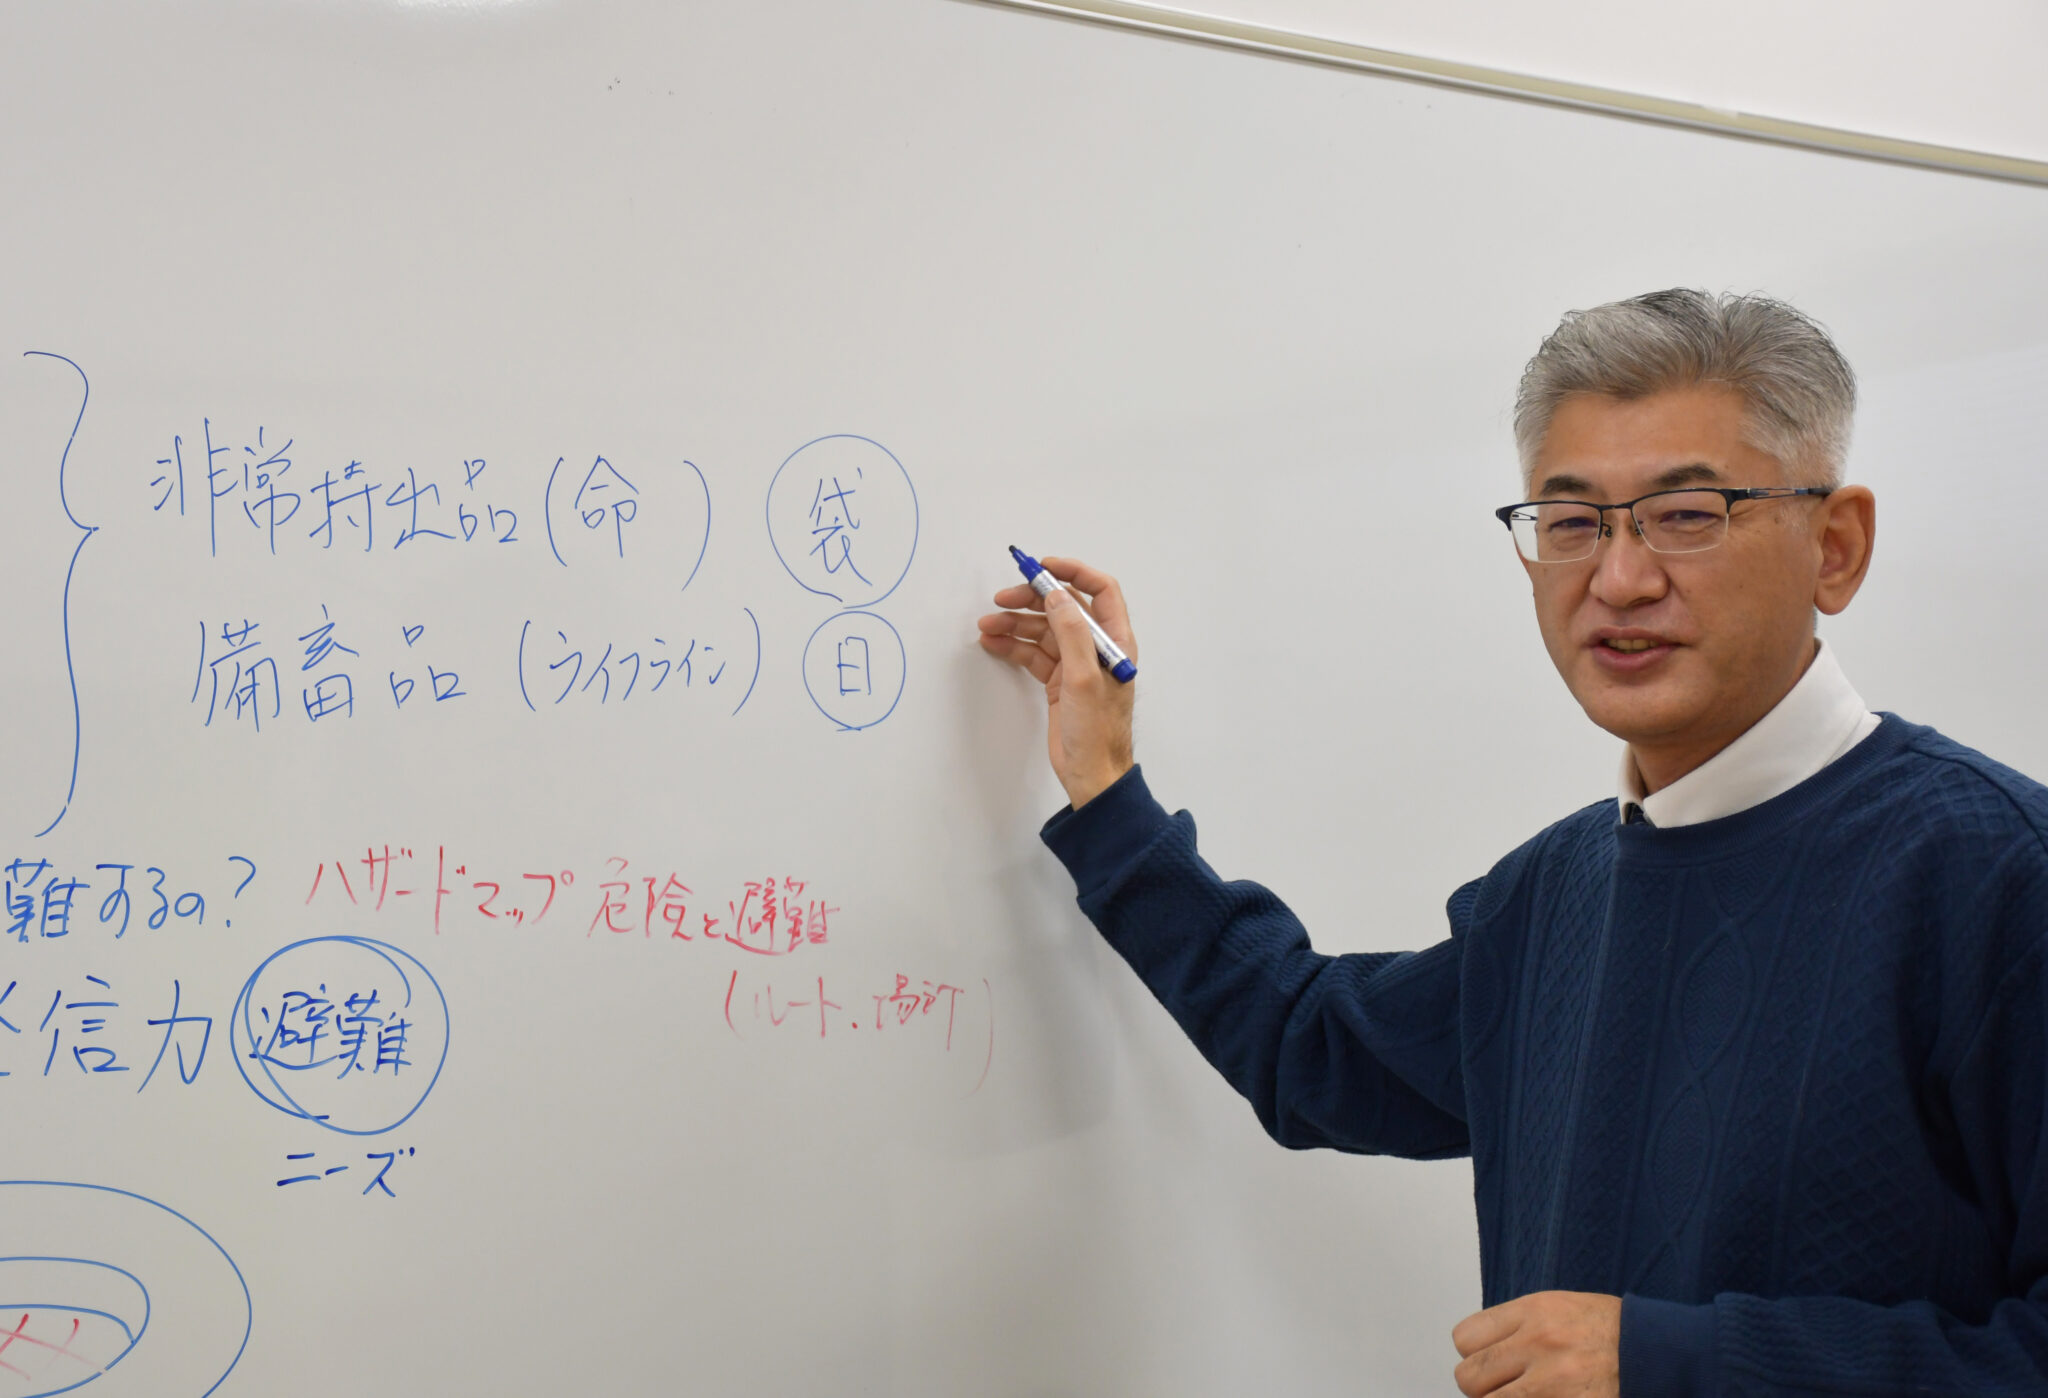 非常持出品(命) 袋
備畜品(ライフライン) 日
難するの? ハザードマップ 危険と避難
(ルート.場所)
信力 避難
ニーズ